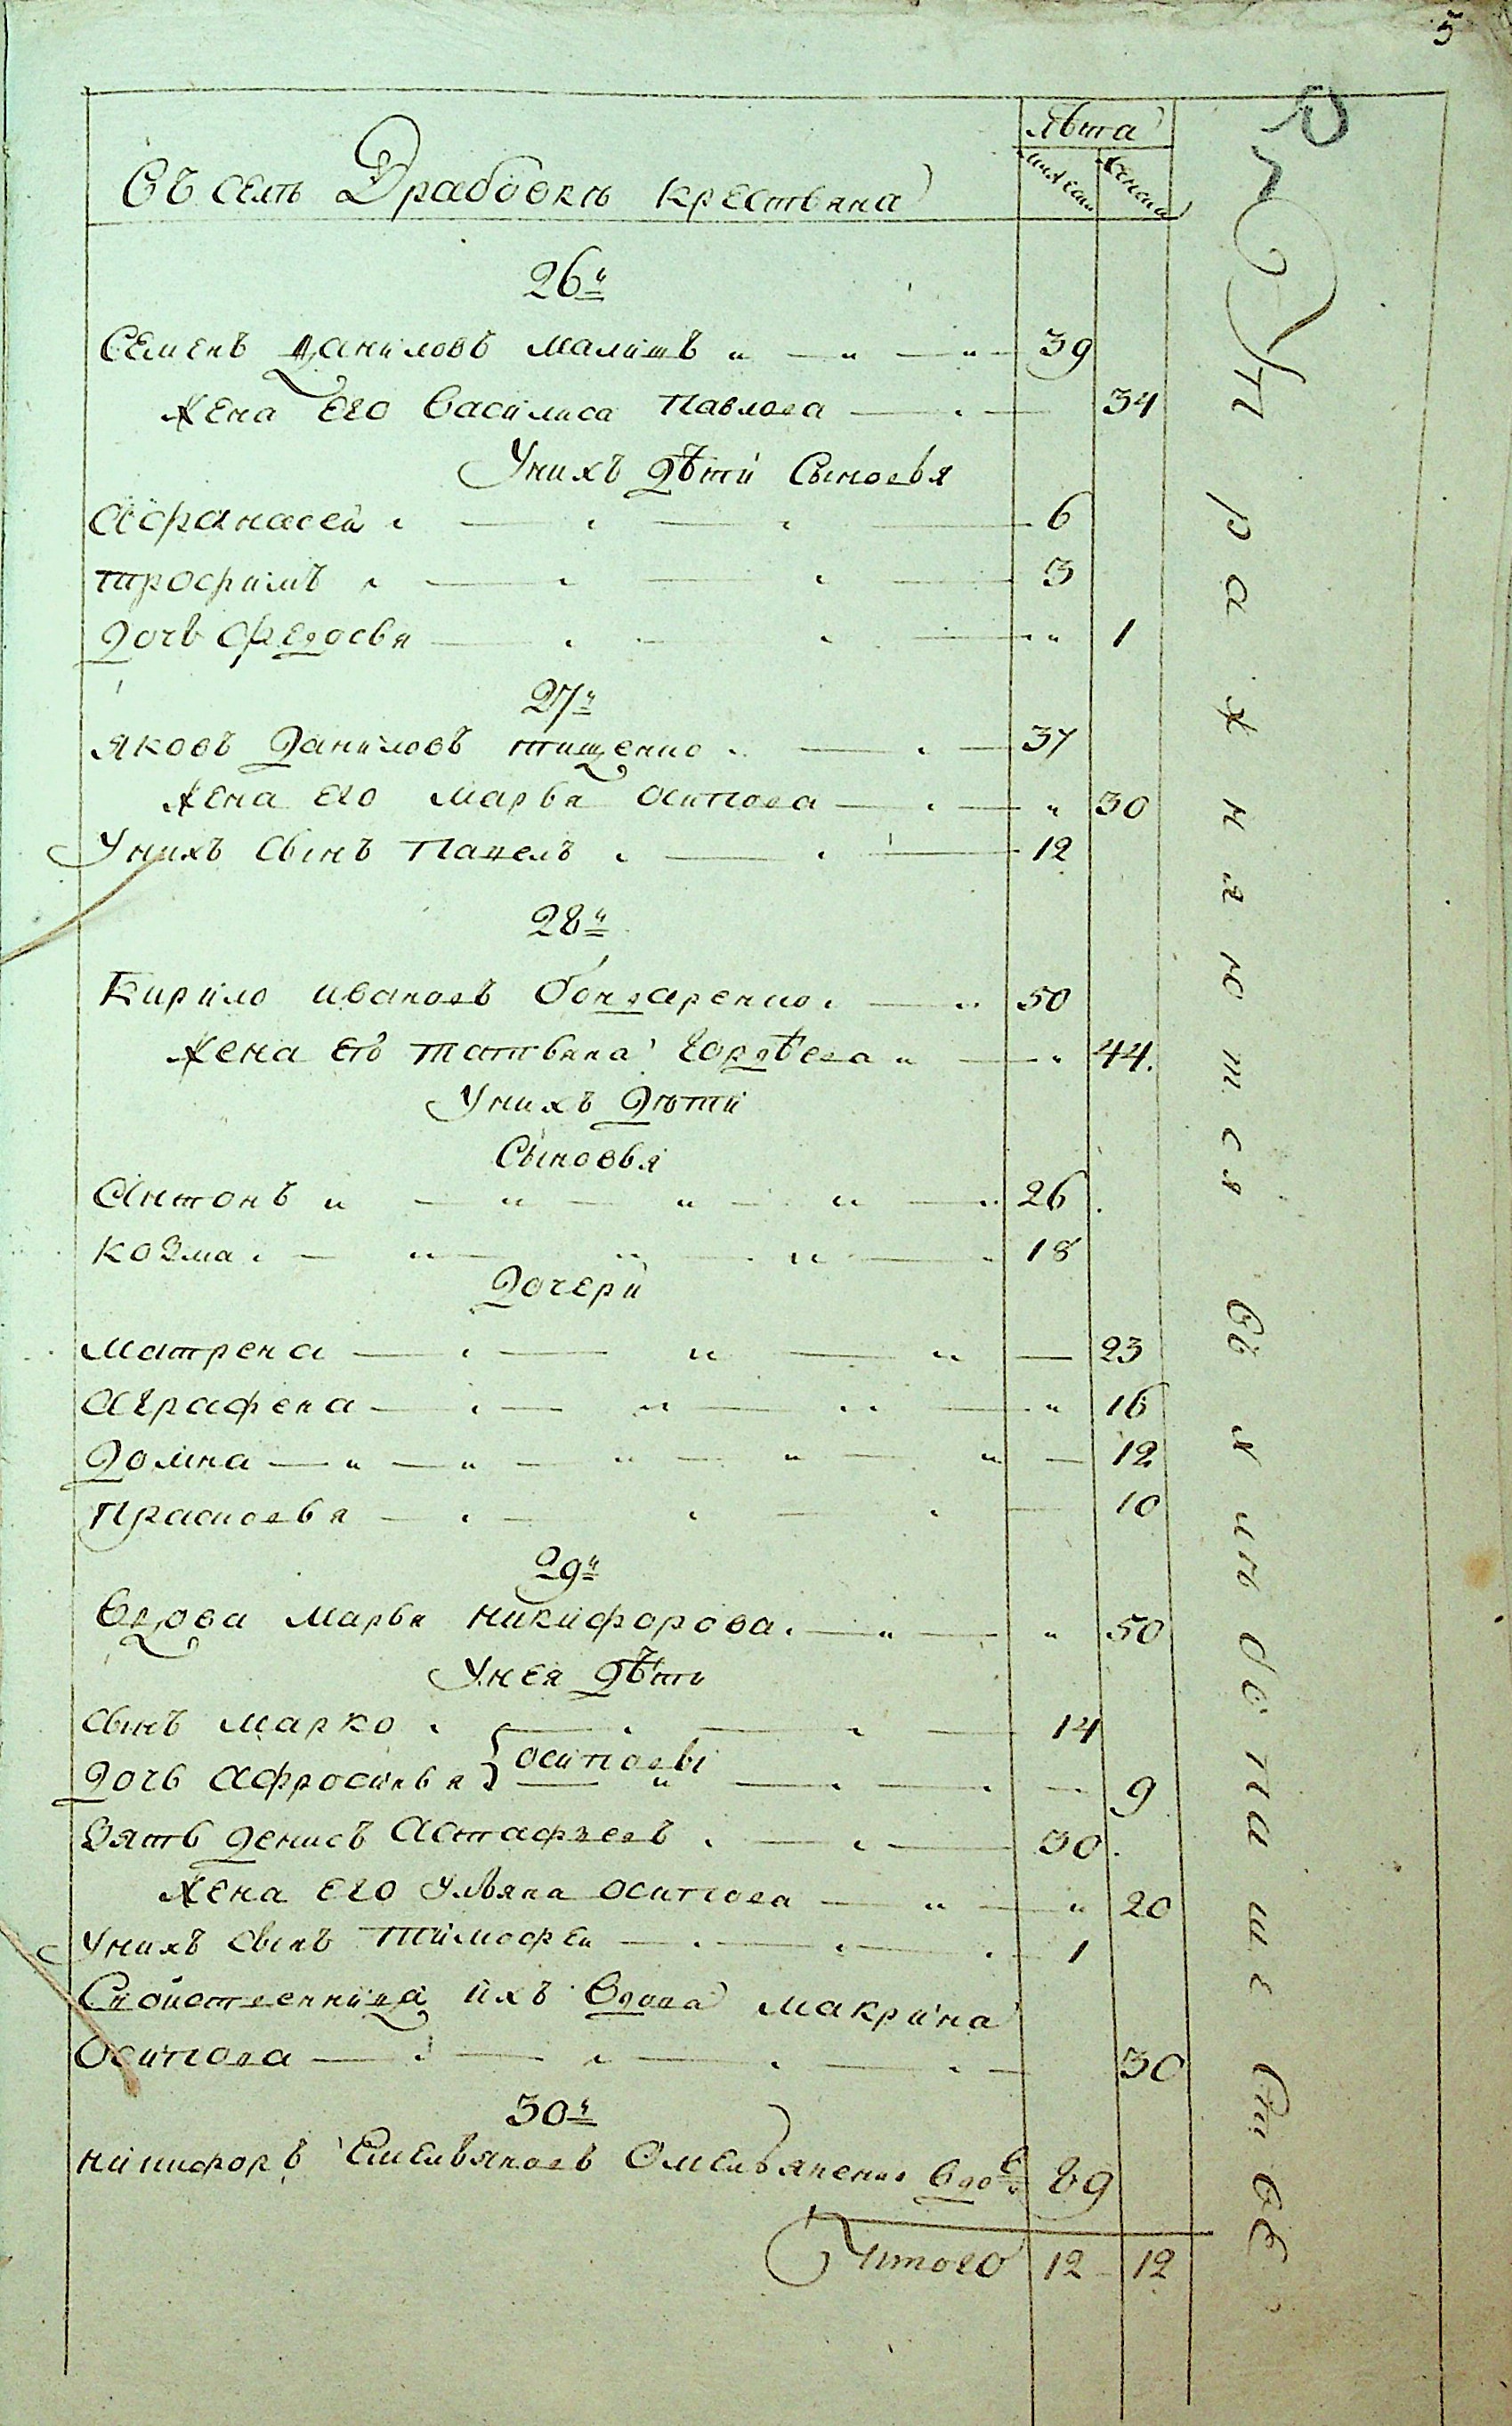 5
лѣта
мужеска женска
Въ селѣ Драбовкѣ крестьяна
26й
Семенъ Даниловъ Малишъ 39
Жена его Василиса Павлова 34
У нихъ дѣти Сыновья
Афанасей 6
Трофимъ 3
Дочь Федосья 1
27й
Яковъ Даниловъ Тищенко 37
Жена его Марья Осипова 30
У нихъ сынъ Павелъ 12
28й
Кирило Ивановъ Бондаренко 50
Жена его Татьяна Гордѣева 44.
У нихъ дѣти
Сыновья
Антонъ 26
Козма 18
Дочери
Матрена 23
Аграфена 16
Домна 12
Прасковья 10
29й
Вдова Марья Никифорова 50
У нея дѣти
Сынъ Марко 14
Осиповы
Дочь Афросинья 9
Зять Денисъ Астафьевъ 30.
Жена его Ульяна Осипова 20
У нихъ сынъ Тимофей 1
Свойственница ихъ вдова Макрина
Осипова 30
30й
Никифоръ Емельяновъ Омельяненко вдовъ 89
Итого 12 12